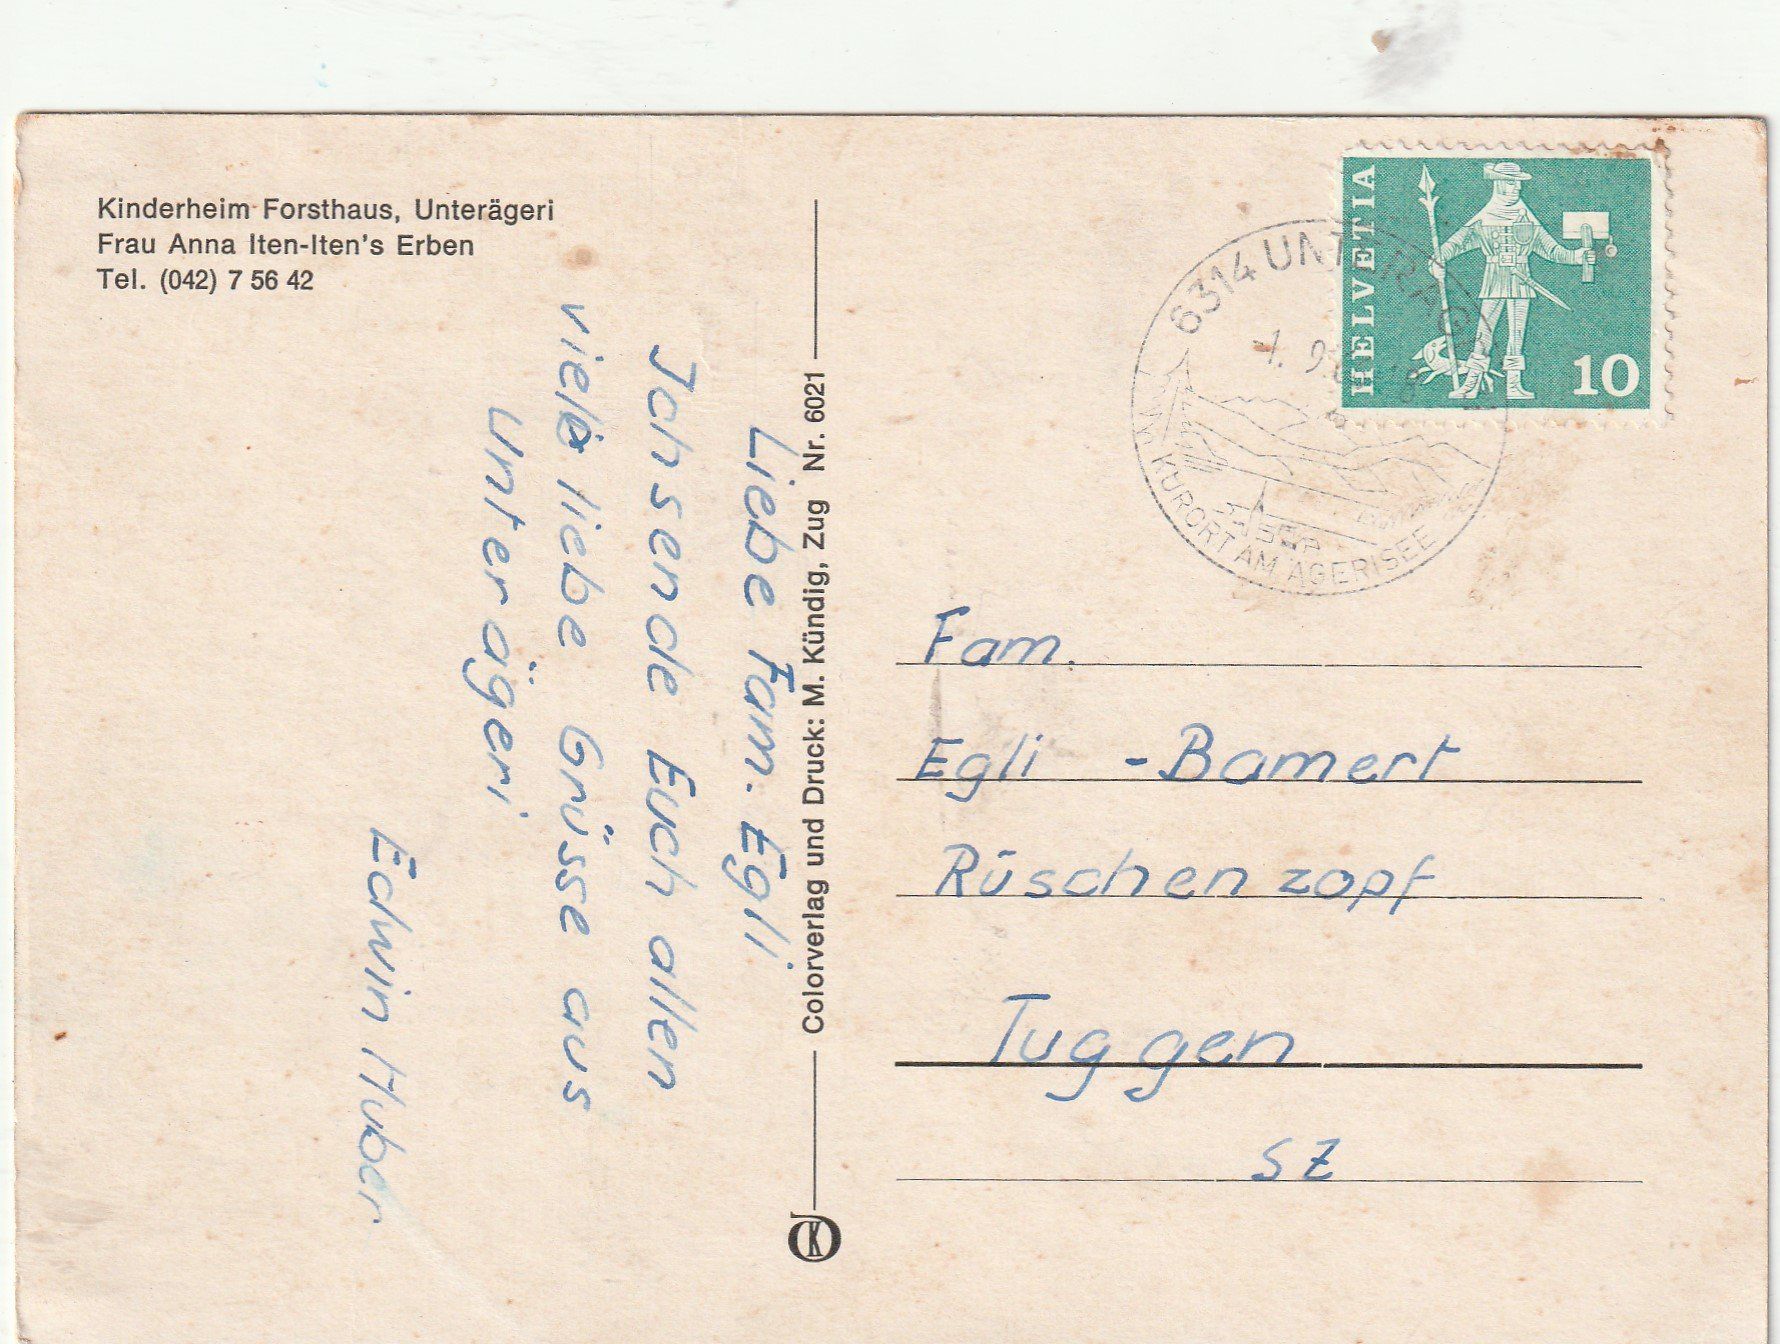 Kinderheim Forsthaus, Unterägeri
Frau Anna Iten-Iten's Erben
Tel. (042) 7 56 42
Liebe Fam. Egli.
Ich sende Euch allen
viele liebe Grüsse aus
Unterägeri
Edwin Huber
Colorverlag und Druck: M. Kündig, Zug Nr. 6021
HELVETIA
10
6314 UNTERÄGERI
KURORT AM ÄGERISEE
Fam.
Egli - Bamert
Rüschenzopf
Tuggen
SZ